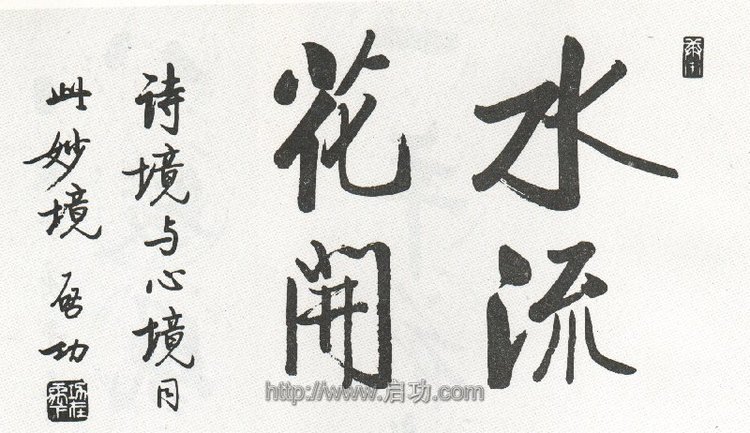 水流
花開
诗境与心境同
此妙境 启功
http://www.启功.com